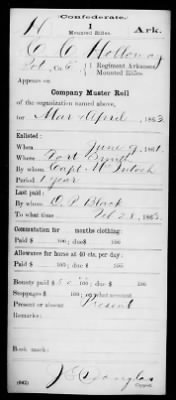 Confederate.
H 1 Ark.
Mounted Rifles.
C C Holloway
Co. 1 Regiment Arkansas
Mounted Rifles.
Appears on
Company Muster Roll
of the organization named above,
for Mar & April, 186
Enlisted:
When June 9, 1861.
Where Fort Smith
By whom Capt McIntosh
Period 1 year
Last paid:
By whom Black
To what time Feb 28, 186
Commutation for months clothing:
Paid $ 100; due $ 100
Allowance for horse at 40 cts. per day:
Paid $ 100; due $ 100
Bounty paid $ 100; due $ 100
Stoppages $ 100; on what account
Present or absent Present
Remarks:
Book mark:
(642) Copyist.